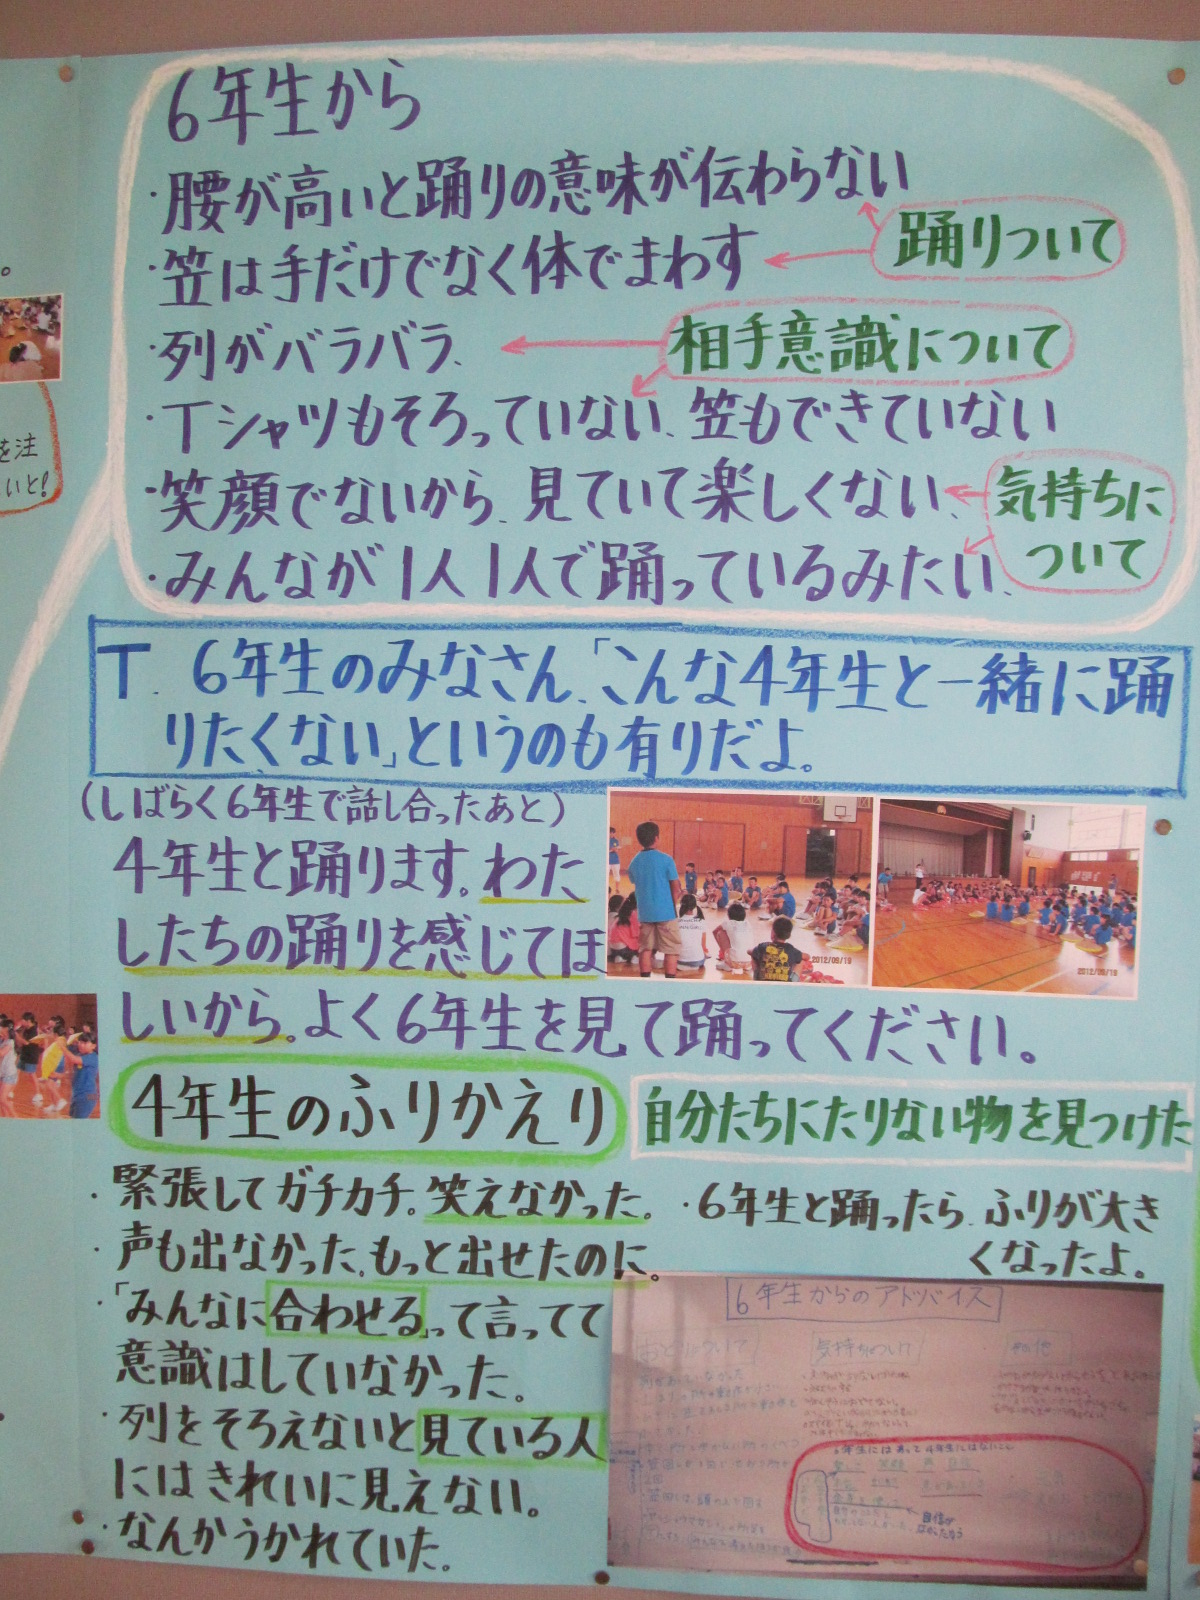 6年生から
・腰が高いと踊りの意味が伝わらない
・笠は手だけでなく体でまわす
踊りついて
・列がバラバラ、
相手意識について
・Tシャツもそろっていない、笠もできていない
・笑顔でないから、見ていて楽しくない、
気持ちに
ついて
・みんなが1人1人で踊っているみたい、
。
を注
いと!
T. 6年生のみなさん、「こんな4年生と一緒に踊
りたくない」というのも有りだよ。
(しばらく6年生で話し合ったあと)
4年生と踊ります。わた
したちの踊りを感じてほ
しいから。よく6年生を見て踊ってください。
2012/09/19
2012/09/19
4年生のふりかえり
自分たちにたりない物を見つけた
・緊張してガチカチ。笑えなかった。
・声も出なかった、もっと出せたのに。
・「みんなに合わせる」って言ってて
意識はしていなかった。
・列をそろえないと見ている人
にはきれいに見えない。
・なんかうかれていた。
・6年生と踊ったら、ふりが大き
くなったよ。
6年生からのアドバイス
おどりについて
気持ちについて
その他